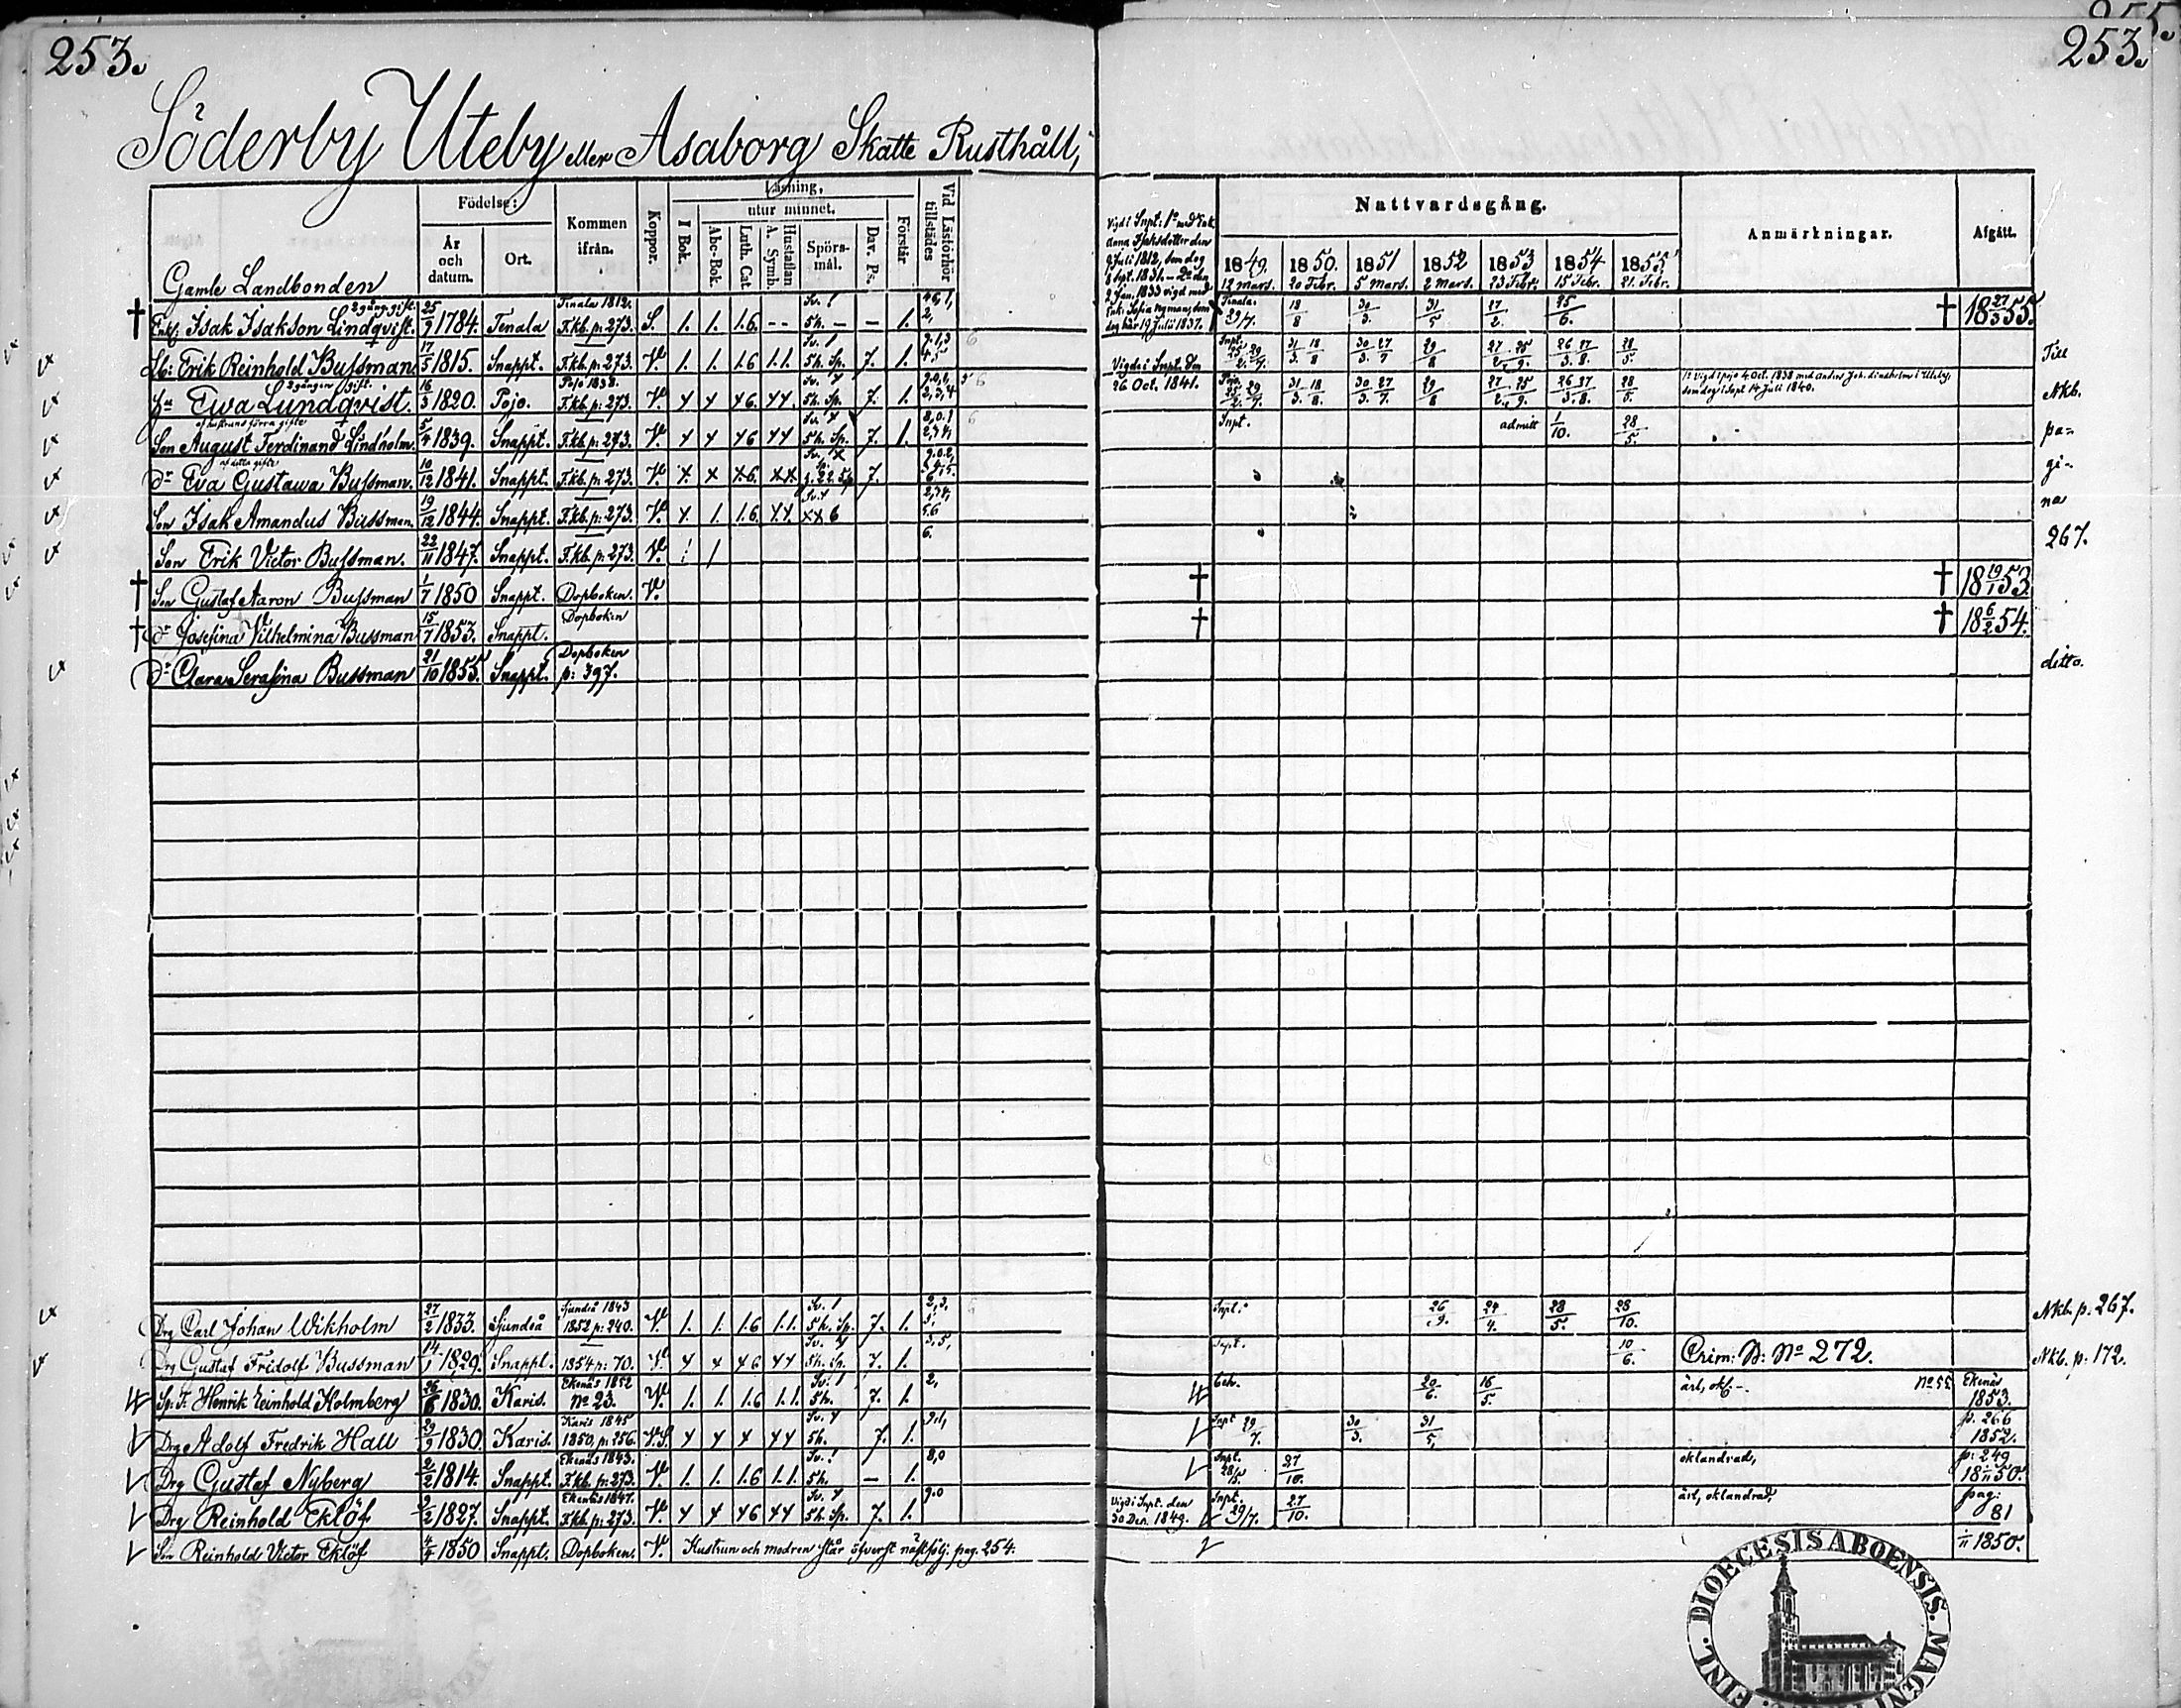 253.
Söderby Uteby eller Asaborg Skatte Rusthåll,
Födelse:
År och datum.
Ort.
Kommen ifrån.
Koppor.
Läsning,
utur minnet.
I Bok.
Abc-Bok.
Luth. Cat.
Hustaflan A. Symb.
Spörsmål.
Dav. Ps.
Förstår
Vid Läsförhör tillstädes
Gamle Landbonden
† Enkl. Isak Isakson Lindqvist. 2 gång gift. 25/9 1784. Tenala Tenala 1812. F.kb. p. 273. S. 1. 1. 1.6 – – Sv. 1 5h. – – 1.
Lb: Erik Reinhold Bussman 17/5 1815. Snappt. F.kb. p: 273. V. 1. 1. 1.6 1.1. Sv. 1 5h. Sp. 7. 1.
Hu Ewa Lundqvist. 2 gången gift. 16/3 1820. Pojo. Pojo 1838. F.kb. p: 273. V. 7. 1.
af hustruns förra gifte
Son August Ferdinand Lindholm. 5/4 1839. Snappt. F.kb. p: 273. V. 5h. Sp. 7. 1.
af detta gifte
Dr Eva Gustawa Bussman. 10/12 1841. Snappt. F.kb. p: 273. V. 7.
Son Isak Amandus Bussman. 19/12 1844. Snappt. F.kb. p: 273. V.
Son Erik Victor Bussman. 22/11 1847. Snappt. F.kb. p: 273. V.
† Son Gustaf Aaron Bussman 1/7 1850 Snappt. Dopboken. V.
† Dr Josefina Vilhelmina Bussman 15/7 1853. Snappt. Dopboken
Dr Clara Serafina Bussman 21/10 1855. Snappt. Dopboken p: 397.
Drg Carl Johan Wikholm 27/2 1833. Sjundeå Sjundeå 1843 1852 p: 240. V. 1. 1. 1.6 1.1. Sv. 1 5h. Sp. 7. 1.
Drg Gustaf Fridolf Bussman 14/1 1829. Snappt. 1854 p: 70. V. 5h. Sp. 7. 1.
Henrik Reinhold Holmberg 1830. Karis. Ekenäs 1852 No 23. V. 1. 1. 1.6 1.1. Sv. 1 5h. 7. 1. 2,
Drg Adolf Fredrik Hall 29/9 1830. Karis. Karis 1845 1850, p. 256. 5h. 7. 1.
Drg Gustaf Nyberg 2/2 1814. Snappt. Ekenäs 1843. F.kb. p: 273. V. 1. 1. 1.6 1.1. Sv. 1 5h. – 1. 8,0
Drg Reinhold Eklöf 2/2 1827. Snappt. Ekenäs 1847. F.kb. p: 273. V. 5h. Sp. 7. 1. 9.0
Son Reinhold Victor Eklöf 4/4 1850 Snappt. Dopboken. V. Hustrun och modren står öfverst nästfölj. pag. 254.
255.
253.
Vigd i Snpt: 1o med Enk.
Anna Isaksdotter den
9 Juli 1812, som dog
1 Sept. 1831. – 2o den
Jan. 1833 vigd med
Enk: Sofia Nyman, som
dog här 19 Juli 1837.
Nattvardsgång.
Anmärkningar.
Afgått.
1849. 1850. 1851 1852 1853 1854 1855
12 Mars. 20 Febr. 5 Mars. 2 Mars. 23 Febr. 15 Febr. 21. Febr.
Tenala. 29/7. 18/8 30/3. 31/5 27/2. 25/6. † 18 27/3 55.
Vigde i Snpt. den 26 Oct. 1841.
Snpt. 25/2. 29/7. 31/3. 18/8 30/3. 27/7 29/8 27/2. 25/9. 26/3. 27/8. 28/5. Till
Pojo. 25/2. 29/7. 31/3. 18/8. 30/3. 27/7. 29/8 27/2. 25/9. 26/3. 27/8. 28/5. 1o Vigd i Pojo 4 Oct. 1838 med Anders Joh. Lindholm i Uteby, som dog i Snpt 14 Juli 1840. Nkb.
Snpt. admitt 1/10. 28/5. pa-
gi-
na
267.
† † 18 19/1 53
† † 18 6/2 54.
ditto.
Snpt. 26/9. 24/4. 28/5. 28/10. Nkb. p. 267.
Snpt. 10/6. Crim: D: No 272. Nkb. p. 172.
20/6. 16/5. No 55 Ekenäs 1853.
Snpt 29/7. 30/3. 31/5, p. 266 1852.
Snpt. 27/10. oklandrad, p: 249 1850.
Vigd i Snpt. den 30 Dec. 1849. Snpt. 29/7. 27/10. ärl, oklandrad, pag: 81
1/11 1850.
FINL. DIOECESIS ABOENSIS. MAGNI